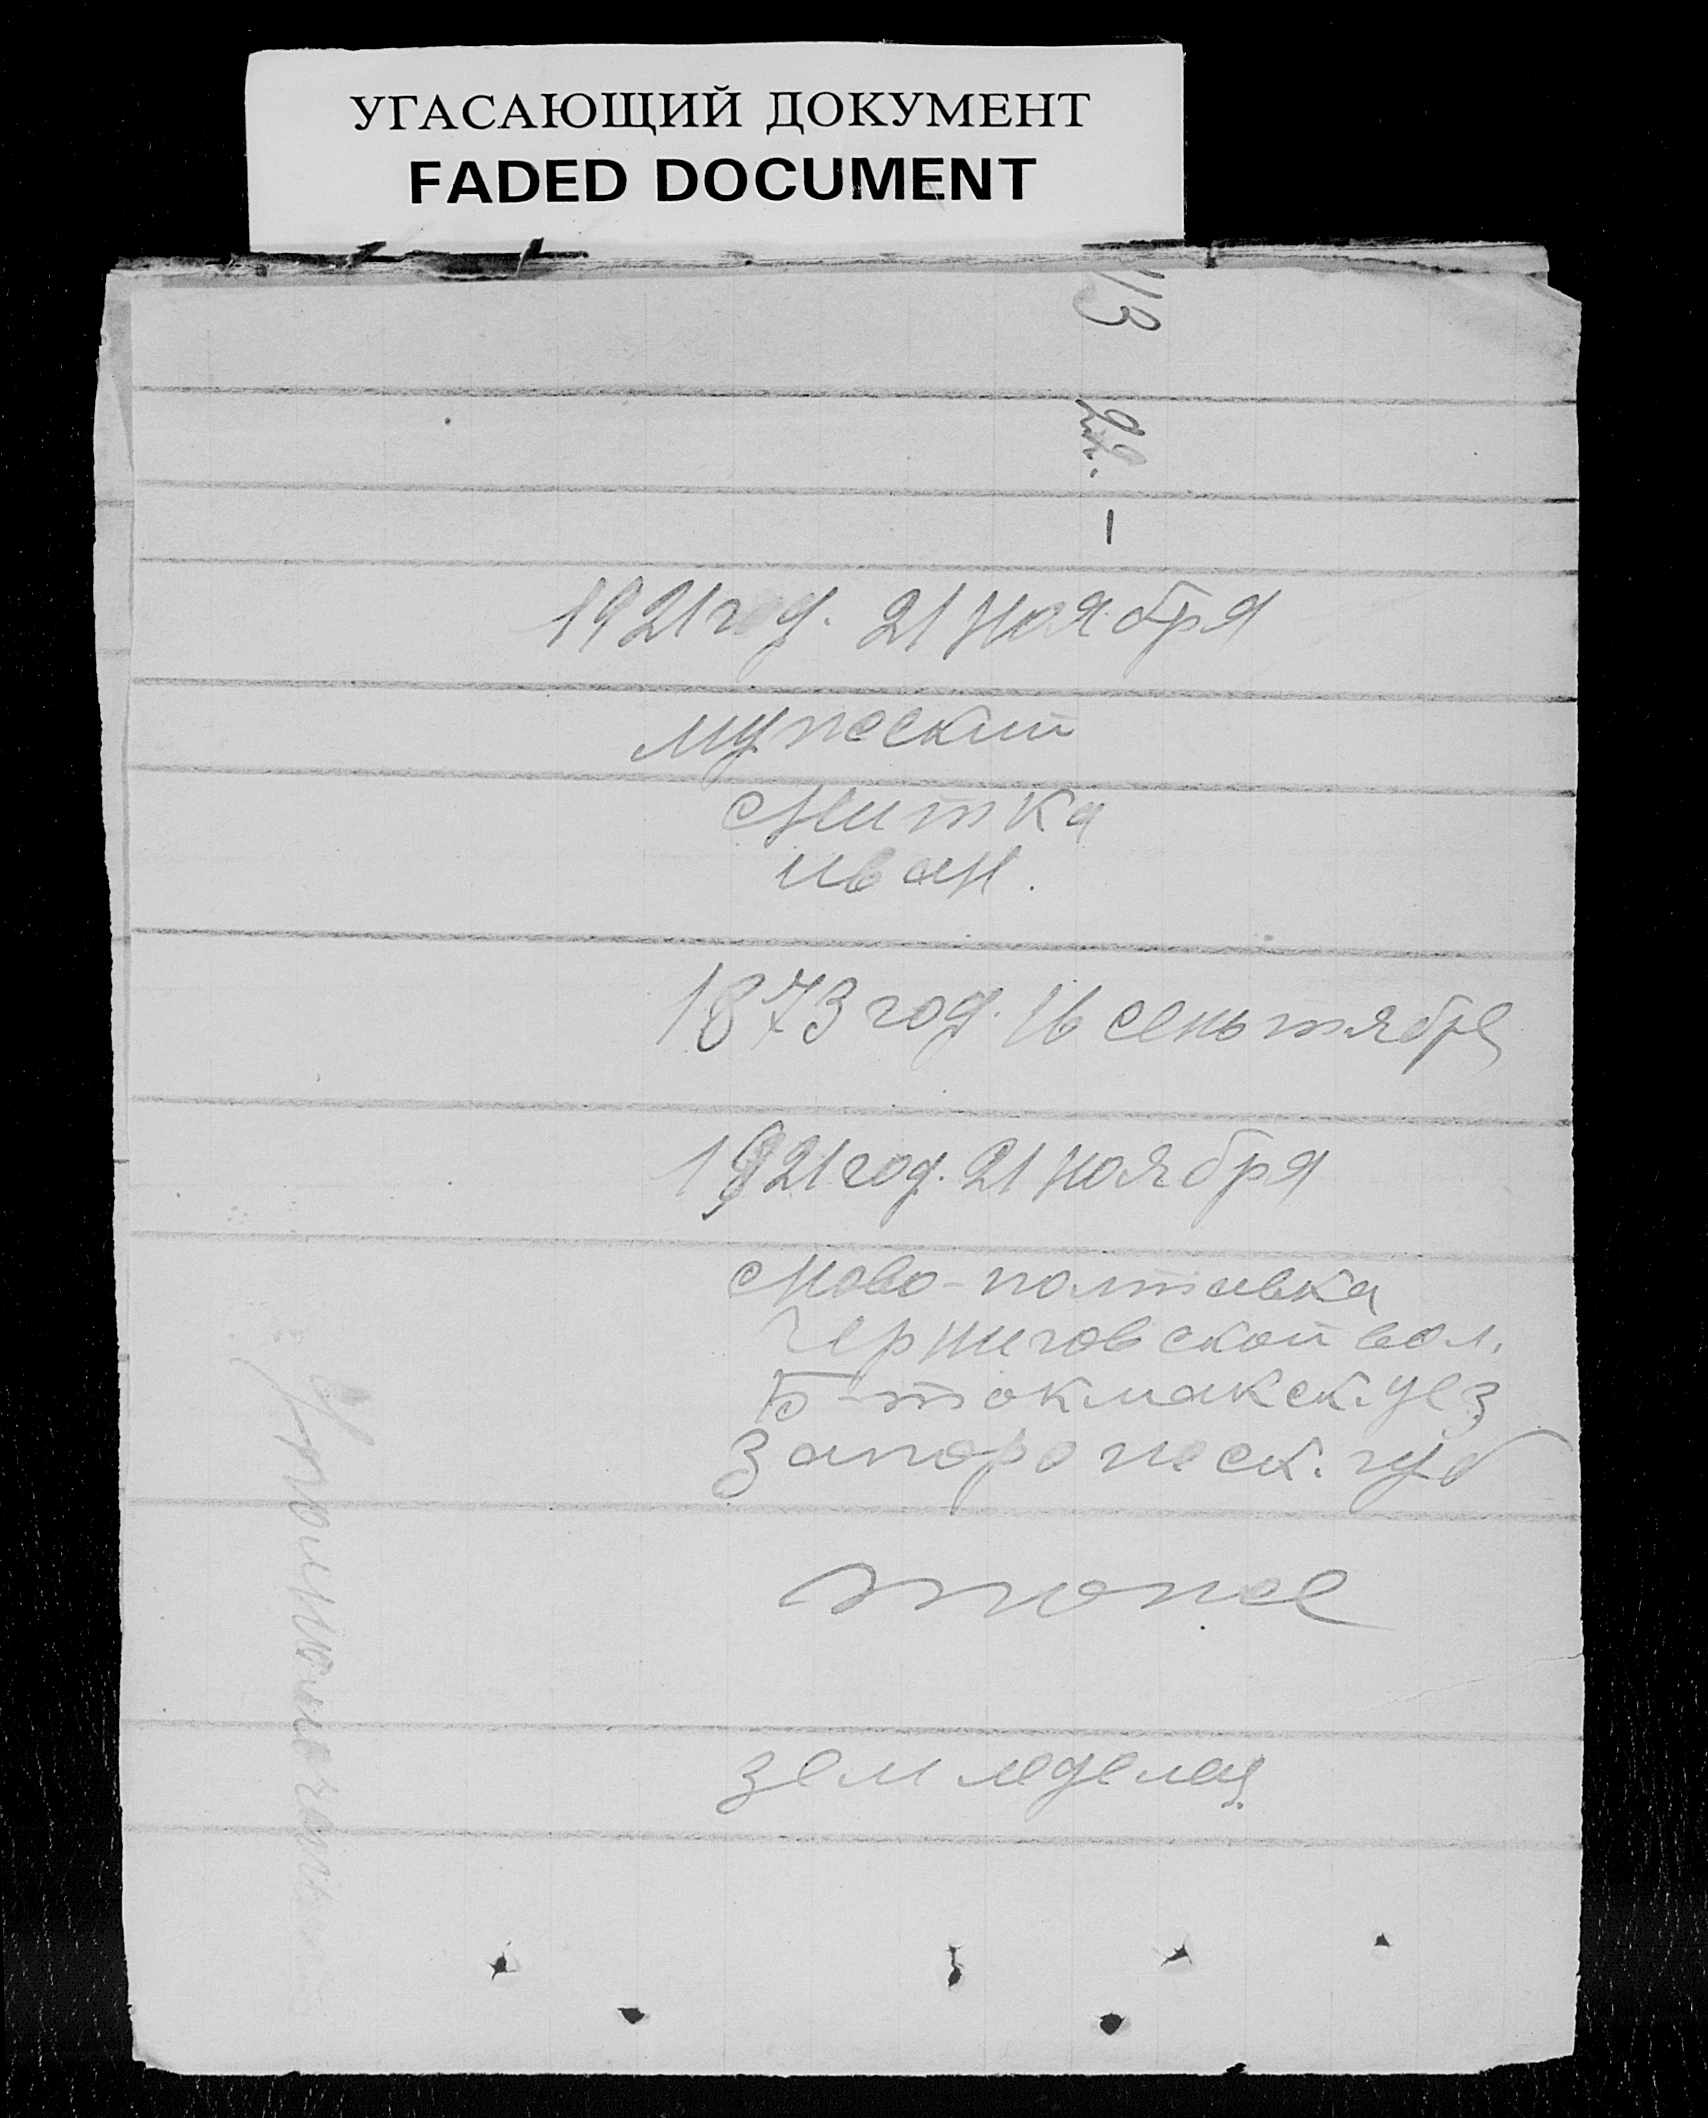 УГАСАЮЩИЙ ДОКУМЕНТ
FADED DOCUMENT
1921 год. 21 ноября
мужский
Нитка
иван.
1873 год. 16 сеньтября
1921 год. 21 ноября
Ново-полтавка
Черниговской вол.
Б-токмакск. уез
Запорожск. губ
тоже
земледелец